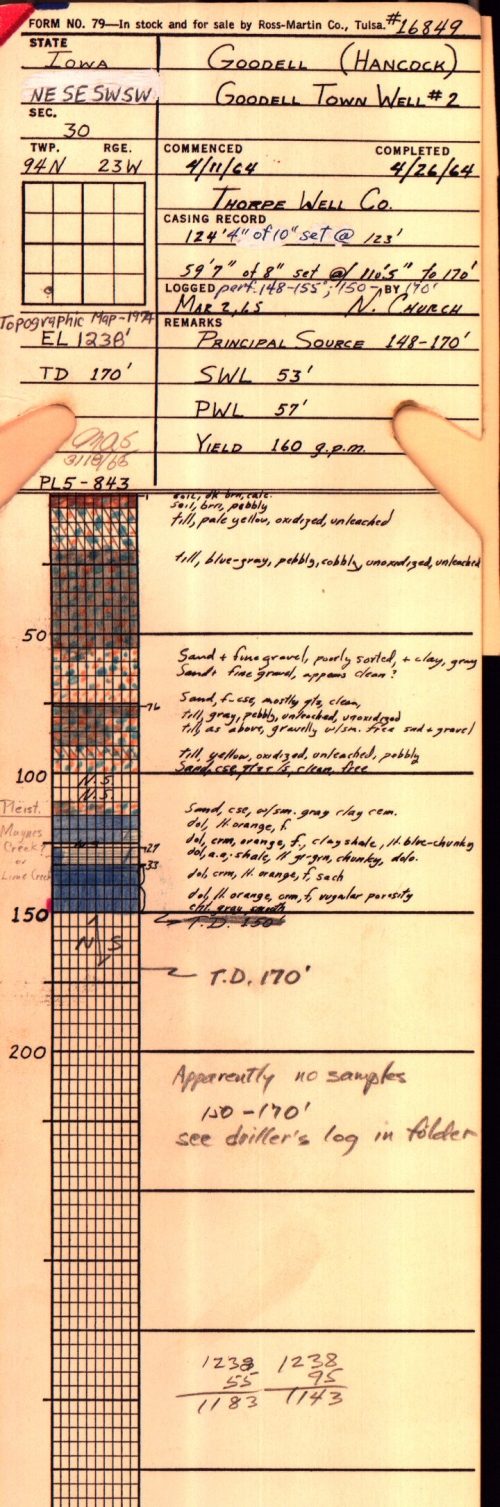 FORM NO. 79—In stock and for sale by Ross-Martin Co., Tulsa. #16849
STATE
IOWA
GOODELL (HANCOCK)
NE SE SWSW
GOODELL TOWN WELL #2
SEC.
30
TWP. RGE.
94N 23W
COMMENCED COMPLETED
4/11/64 4/26/64
THORPE WELL CO.
CASING RECORD
124'4" of 10" set @ 123'
59'7" of 8" set @ 110'5" to 170'
LOGGED BY
perf. 148-155'; 150-170'
MAR 2, 65 N. CHURCH
Topographic Map-1974
EL 1238'
REMARKS
PRINCIPAL SOURCE 148-170'
TD 170'
SWL 53'
PWL 57'
YIELD 160 g.p.m.
3/18/65
PL5-843
soil, dk brn, calc.
soil, brn, pebbly
till, pale yellow, oxidized, unleached
till, blue-gray, pebbly, cobbly, unoxidized, unleached
50
Sand + fine gravel, poorly sorted, + clay, gray
Sand + fine gravel, appears clean?
76
Sand, f-cse, mostly qtz, clean,
till, gray, pebbly, unleached, unoxidized
till, as above, gravelly w/sm. free sand + gravel
till, yellow, oxidized, unleached, pebbly
100
N.S
N.S.
Pleist.
Sand, cse, w/sm. gray clay cem.
dol, lt. orange, f
Mayors
Creek?
or
Lime Creek
27
33
dol, crm, orange, f., clay shale, lt. blue-chunky
dol, a.a., shale, lt gr-grn, chunky, dolo.
dol, crm, lt. orange, f, sach
dol, lt. orange, crm, f, vugular porosity
150
T.D. 150
N S
T.D. 170'
200
Apparently no samples
150-170'
see driller's log in folder
1238 1238
55 95
1183 1143